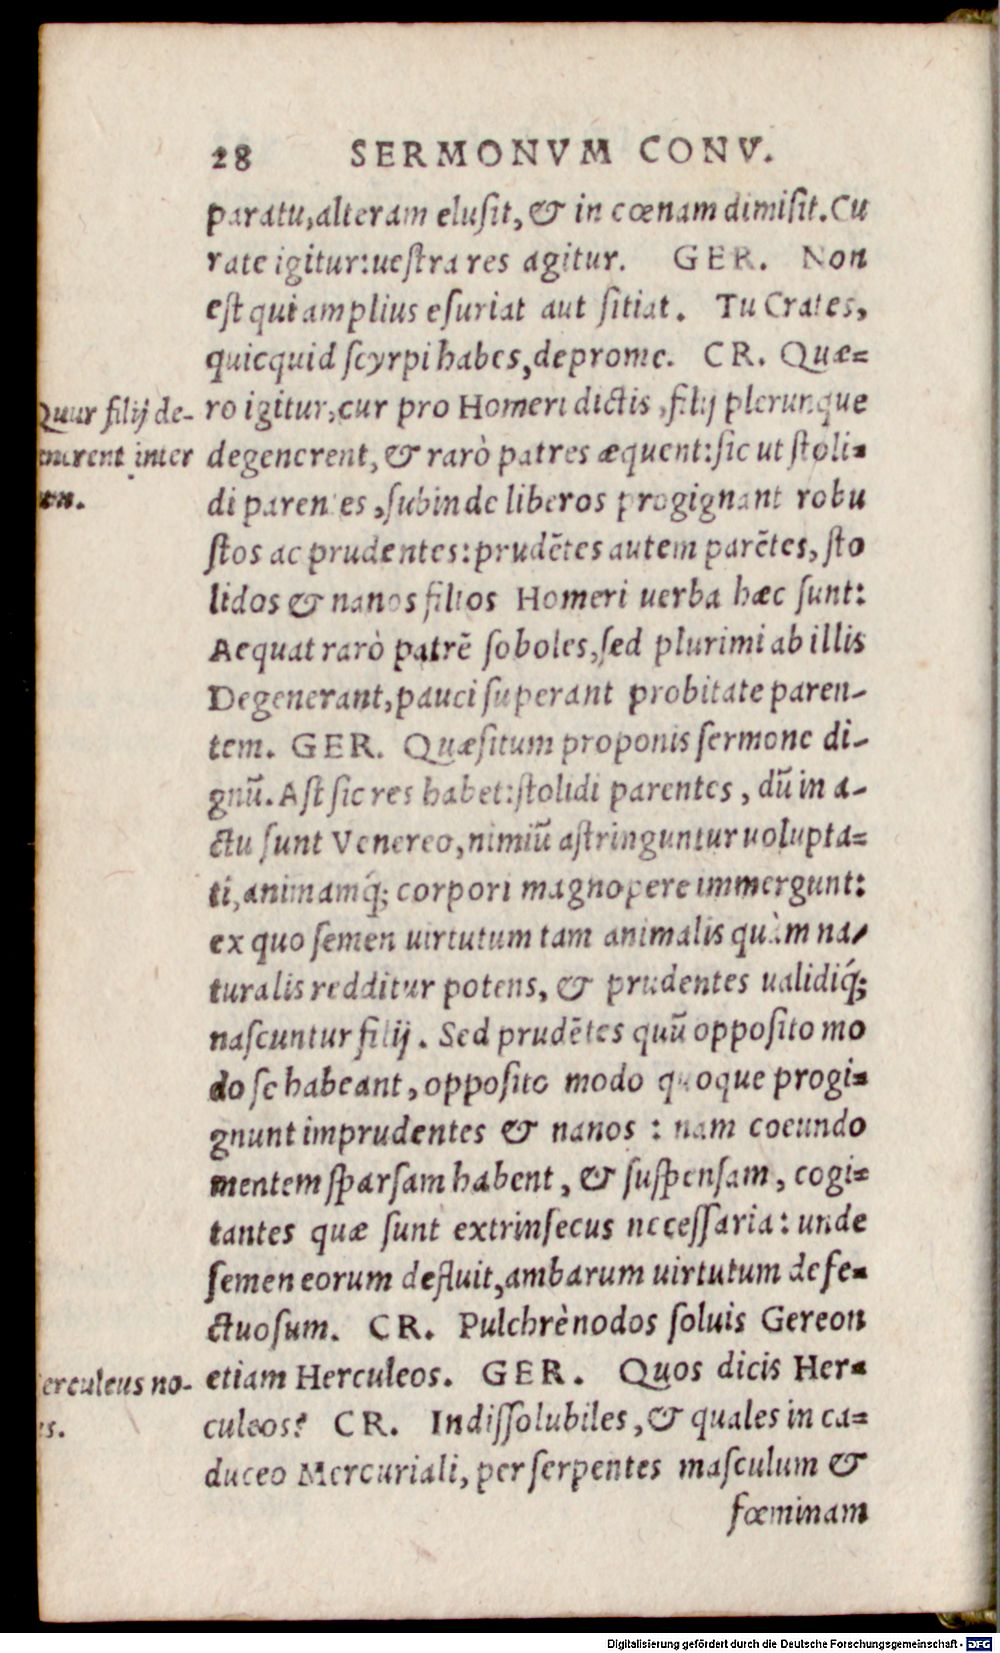 28 SERMONVM CONV.
paratu, alteram elusit, & in cœnam dimisit. Cu
rate igitur: uestra res agitur. GER. Non
est qui amplius esuriat aut sitiat. Tu Crates,
quicquid scyrpi habes, deprome. CR. Quæ=
ro igitur, cur pro Homeri dictis, filij plerunque
degenerent, & rarò patres æquent: sic ut stoli=
di parentes, subinde liberos progignant robu
stos ac prudentes: prudētes autem parētes, sto
lidos & nanos filios Homeri uerba hæc sunt:
Aequat rarò patrē soboles, sed plurimi ab illis
Degenerant, pauci superant probitate paren-
tem. GER. Quæsitum proponis sermone di-
gnū. Ast sic res habet: stolidi parentes, dū in a-
ctu sunt Venereo, nimiū astringuntur uolupta=
ti, animamq́; corpori magnopere immergunt:
ex quo semen uirtutum tam animalis quàm na-
turalis redditur potens, & prudentes ualidiq́;
nascuntur filij. Sed prudētes quū opposito mo
do se habeant, opposito modo quoque progi=
gnunt imprudentes & nanos : nam coeundo
mentem sparsam habent, & suspensam, cogi=
tantes quæ sunt extrinsecus necessaria: unde
semen eorum defluit, ambarum uirtutum defe=
ctuosum. CR. Pulchrè nodos soluis Gereon
etiam Herculeos. GER. Quos dicis Her=
culeos? CR. Indissolubiles, & quales in ca=
duceo Mercuriali, per serpentes masculum &
fœminam
Quur filij de-
enerent inter
um.
erculeus no-
us.
Digitalisierung gefördert durch die Deutsche Forschungsgemeinschaft - DFG